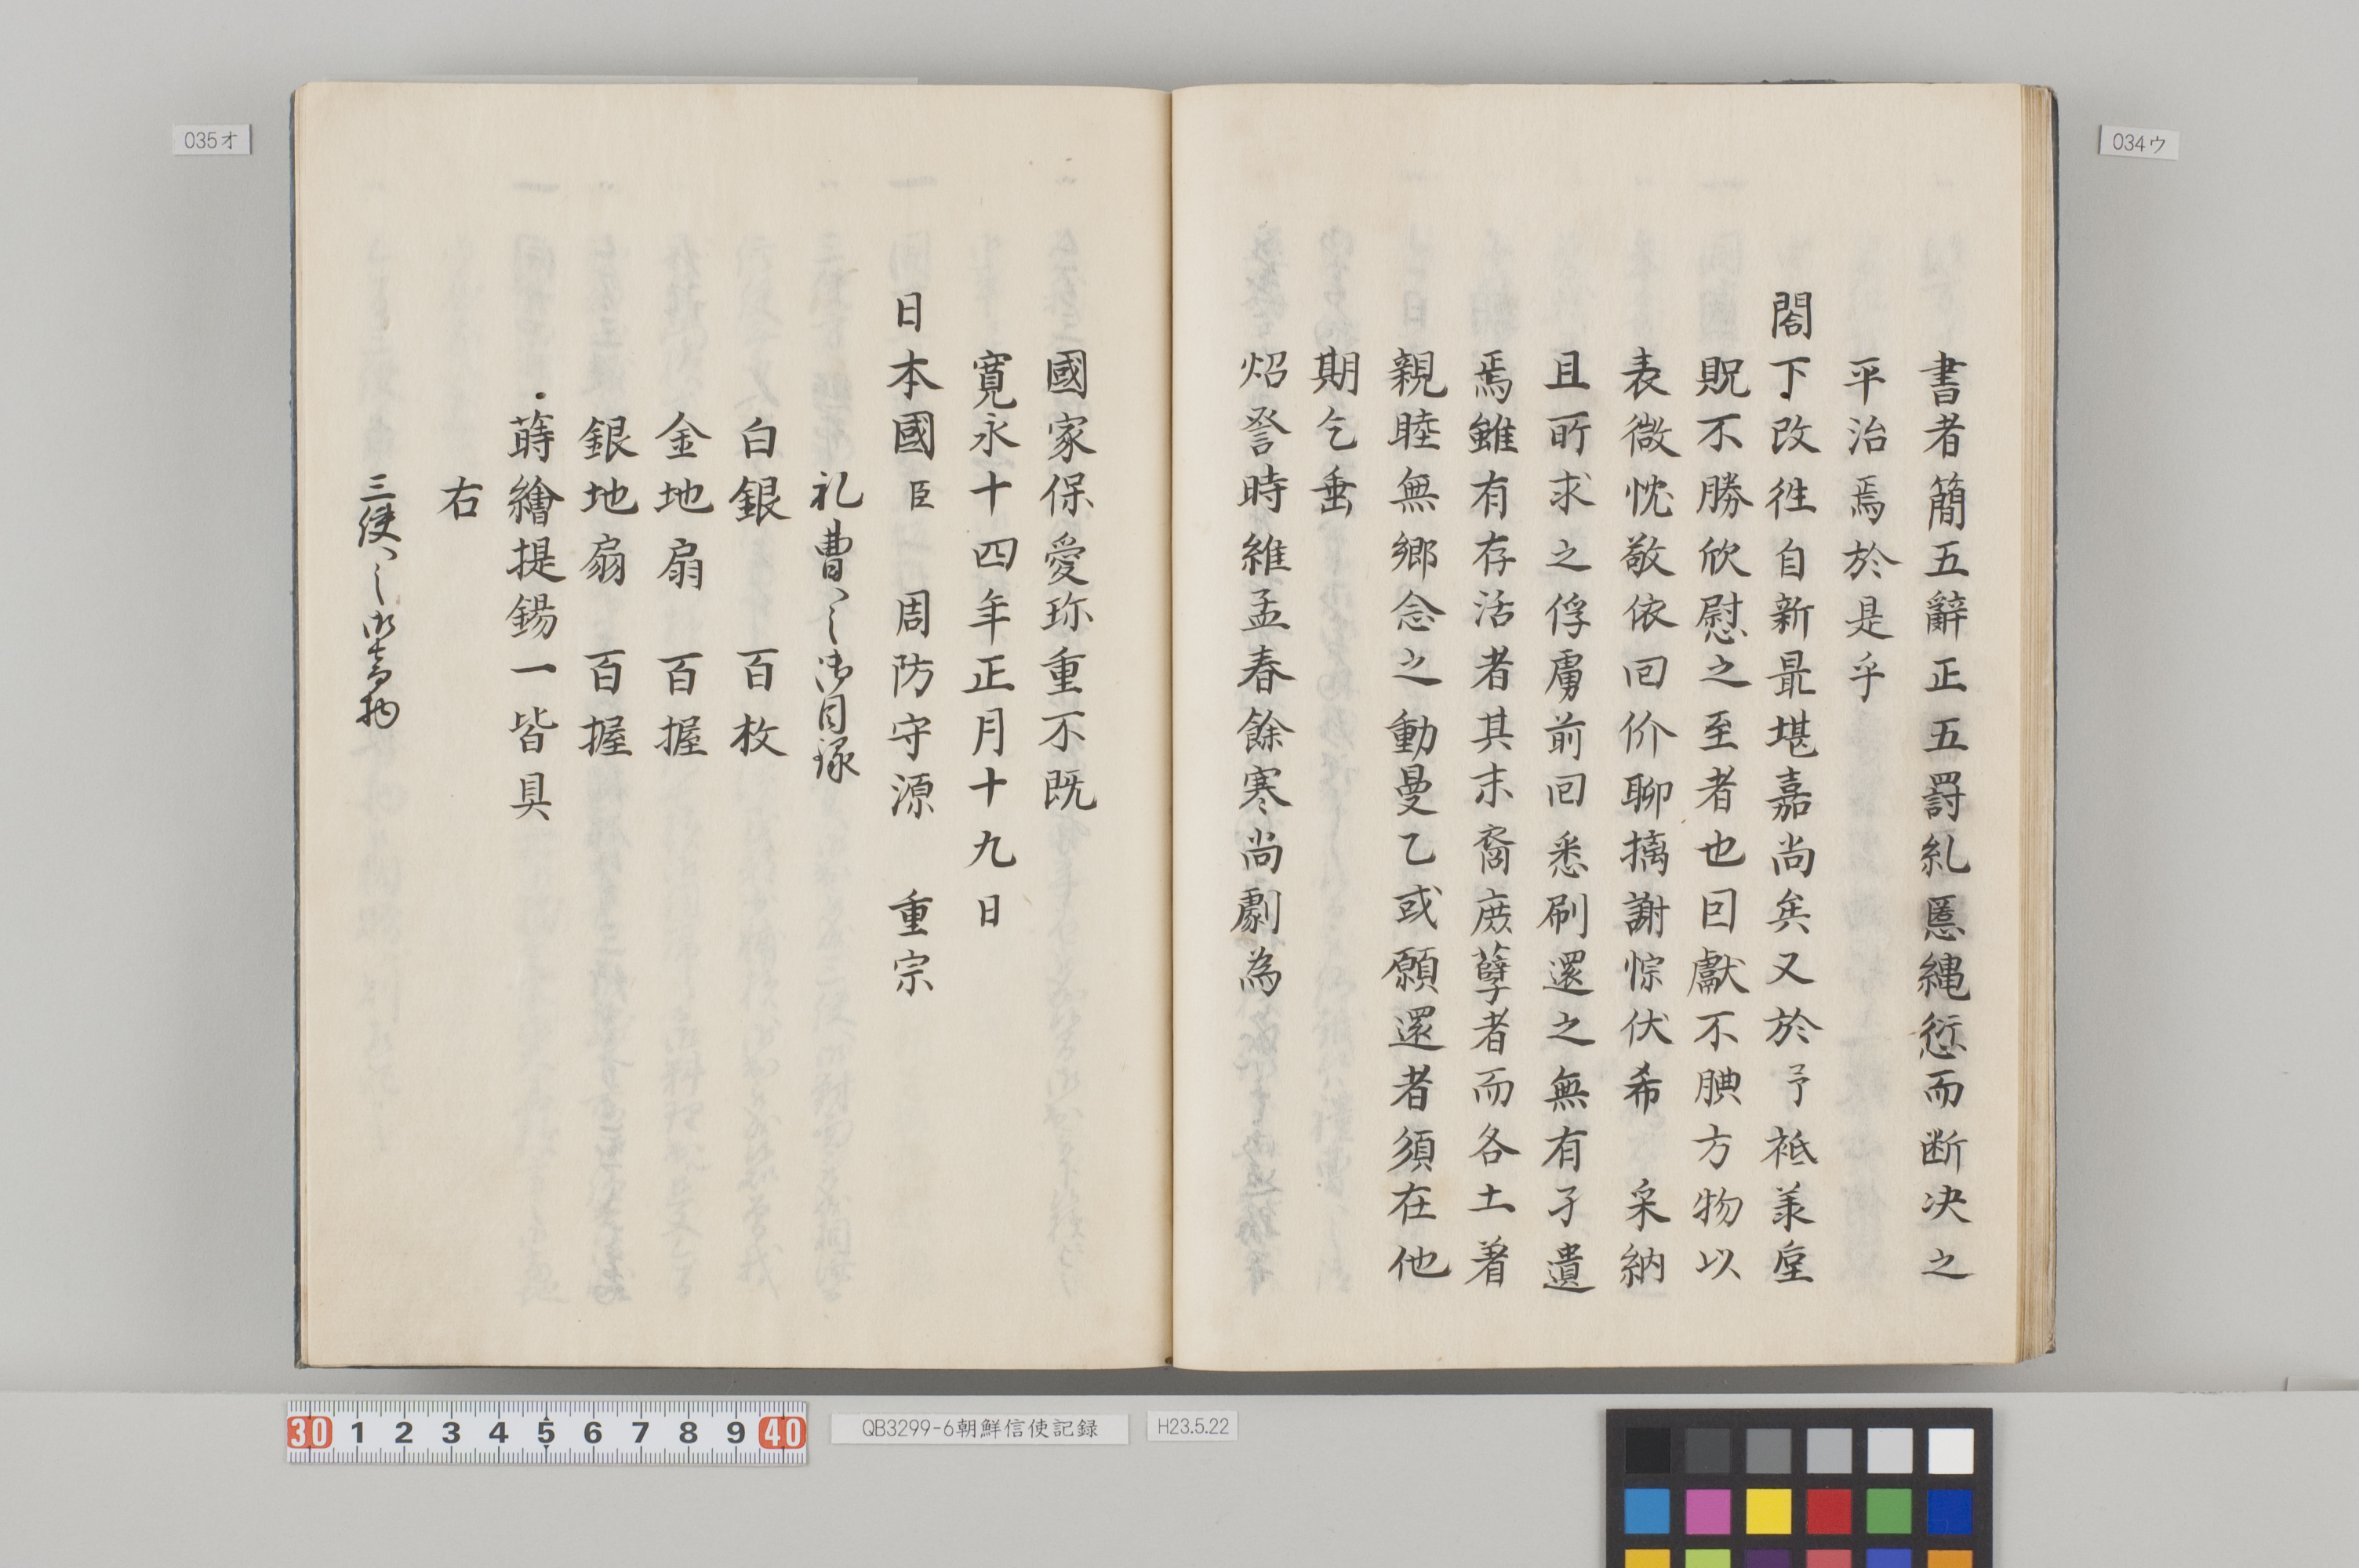 書者簡五辭正五罰糺慝縄愆而断决之
平治焉於是乎
閤下改徃自新最堪嘉尚矣又於予祗羕
貺不勝欣慰之至者也囙獻不腆方物以
表微忱敬依囘价聊摛謝悰伏希采納
且所求之俘虜前囘悉刷還之無有孑遺
焉雖有存活者其末裔庶孽者而各土著
親睦無郷念之動曼乙或願還者須在他
期乞垂
炤詧時維孟春餘寒尚劇為
國家保愛珎重不既
寛永十四年正月十九日
日本國臣 周防守源 重宗
礼曹へ之御目録
白銀 百枚
金地扇 百握
銀地扇 百握
蒔繪提錫一皆具
右
三使へ之御音物
035オ
034ウ
30 1 2 3 4 5 6 7 8 9 40
QB3299-6朝鮮信使記録
H23.5.22